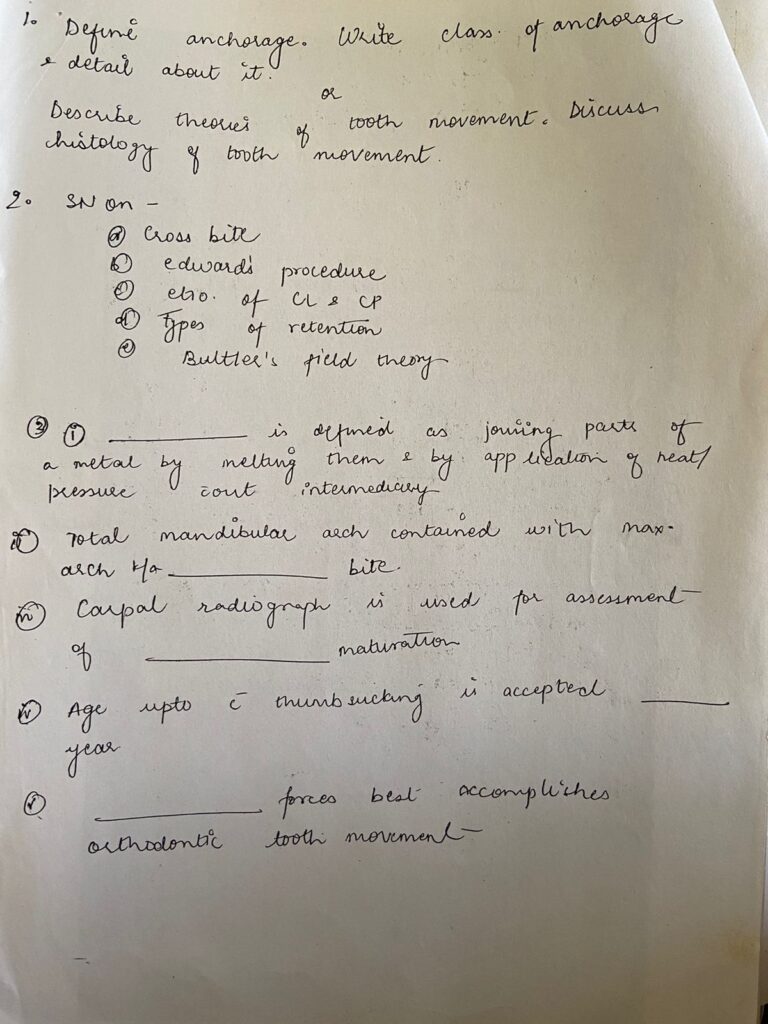 1. Define anchorage. Write class. of anchorage
& detail about it.
or
Describe theories of tooth movement. Discuss
histology of tooth movement.
2. SN on -
(a) Cross bite
(b) edward's procedure
(c) etio. of CL & CP
(d) Types of retention
(e) Bultler's field theory
(3) (i) ________ is defined as joining parts of
a metal by melting them & by application of heat/
pressure cout intermediary
(ii) Total mandibular arch contained with max.
arch k/a ________ bite.
Carpal radiograph is used for assessment
of ________ maturation
(iv) Age upto c̄ thumbsucking is accepted ________
year
(v) ________ forces best accomplishes
orthodontic tooth movement